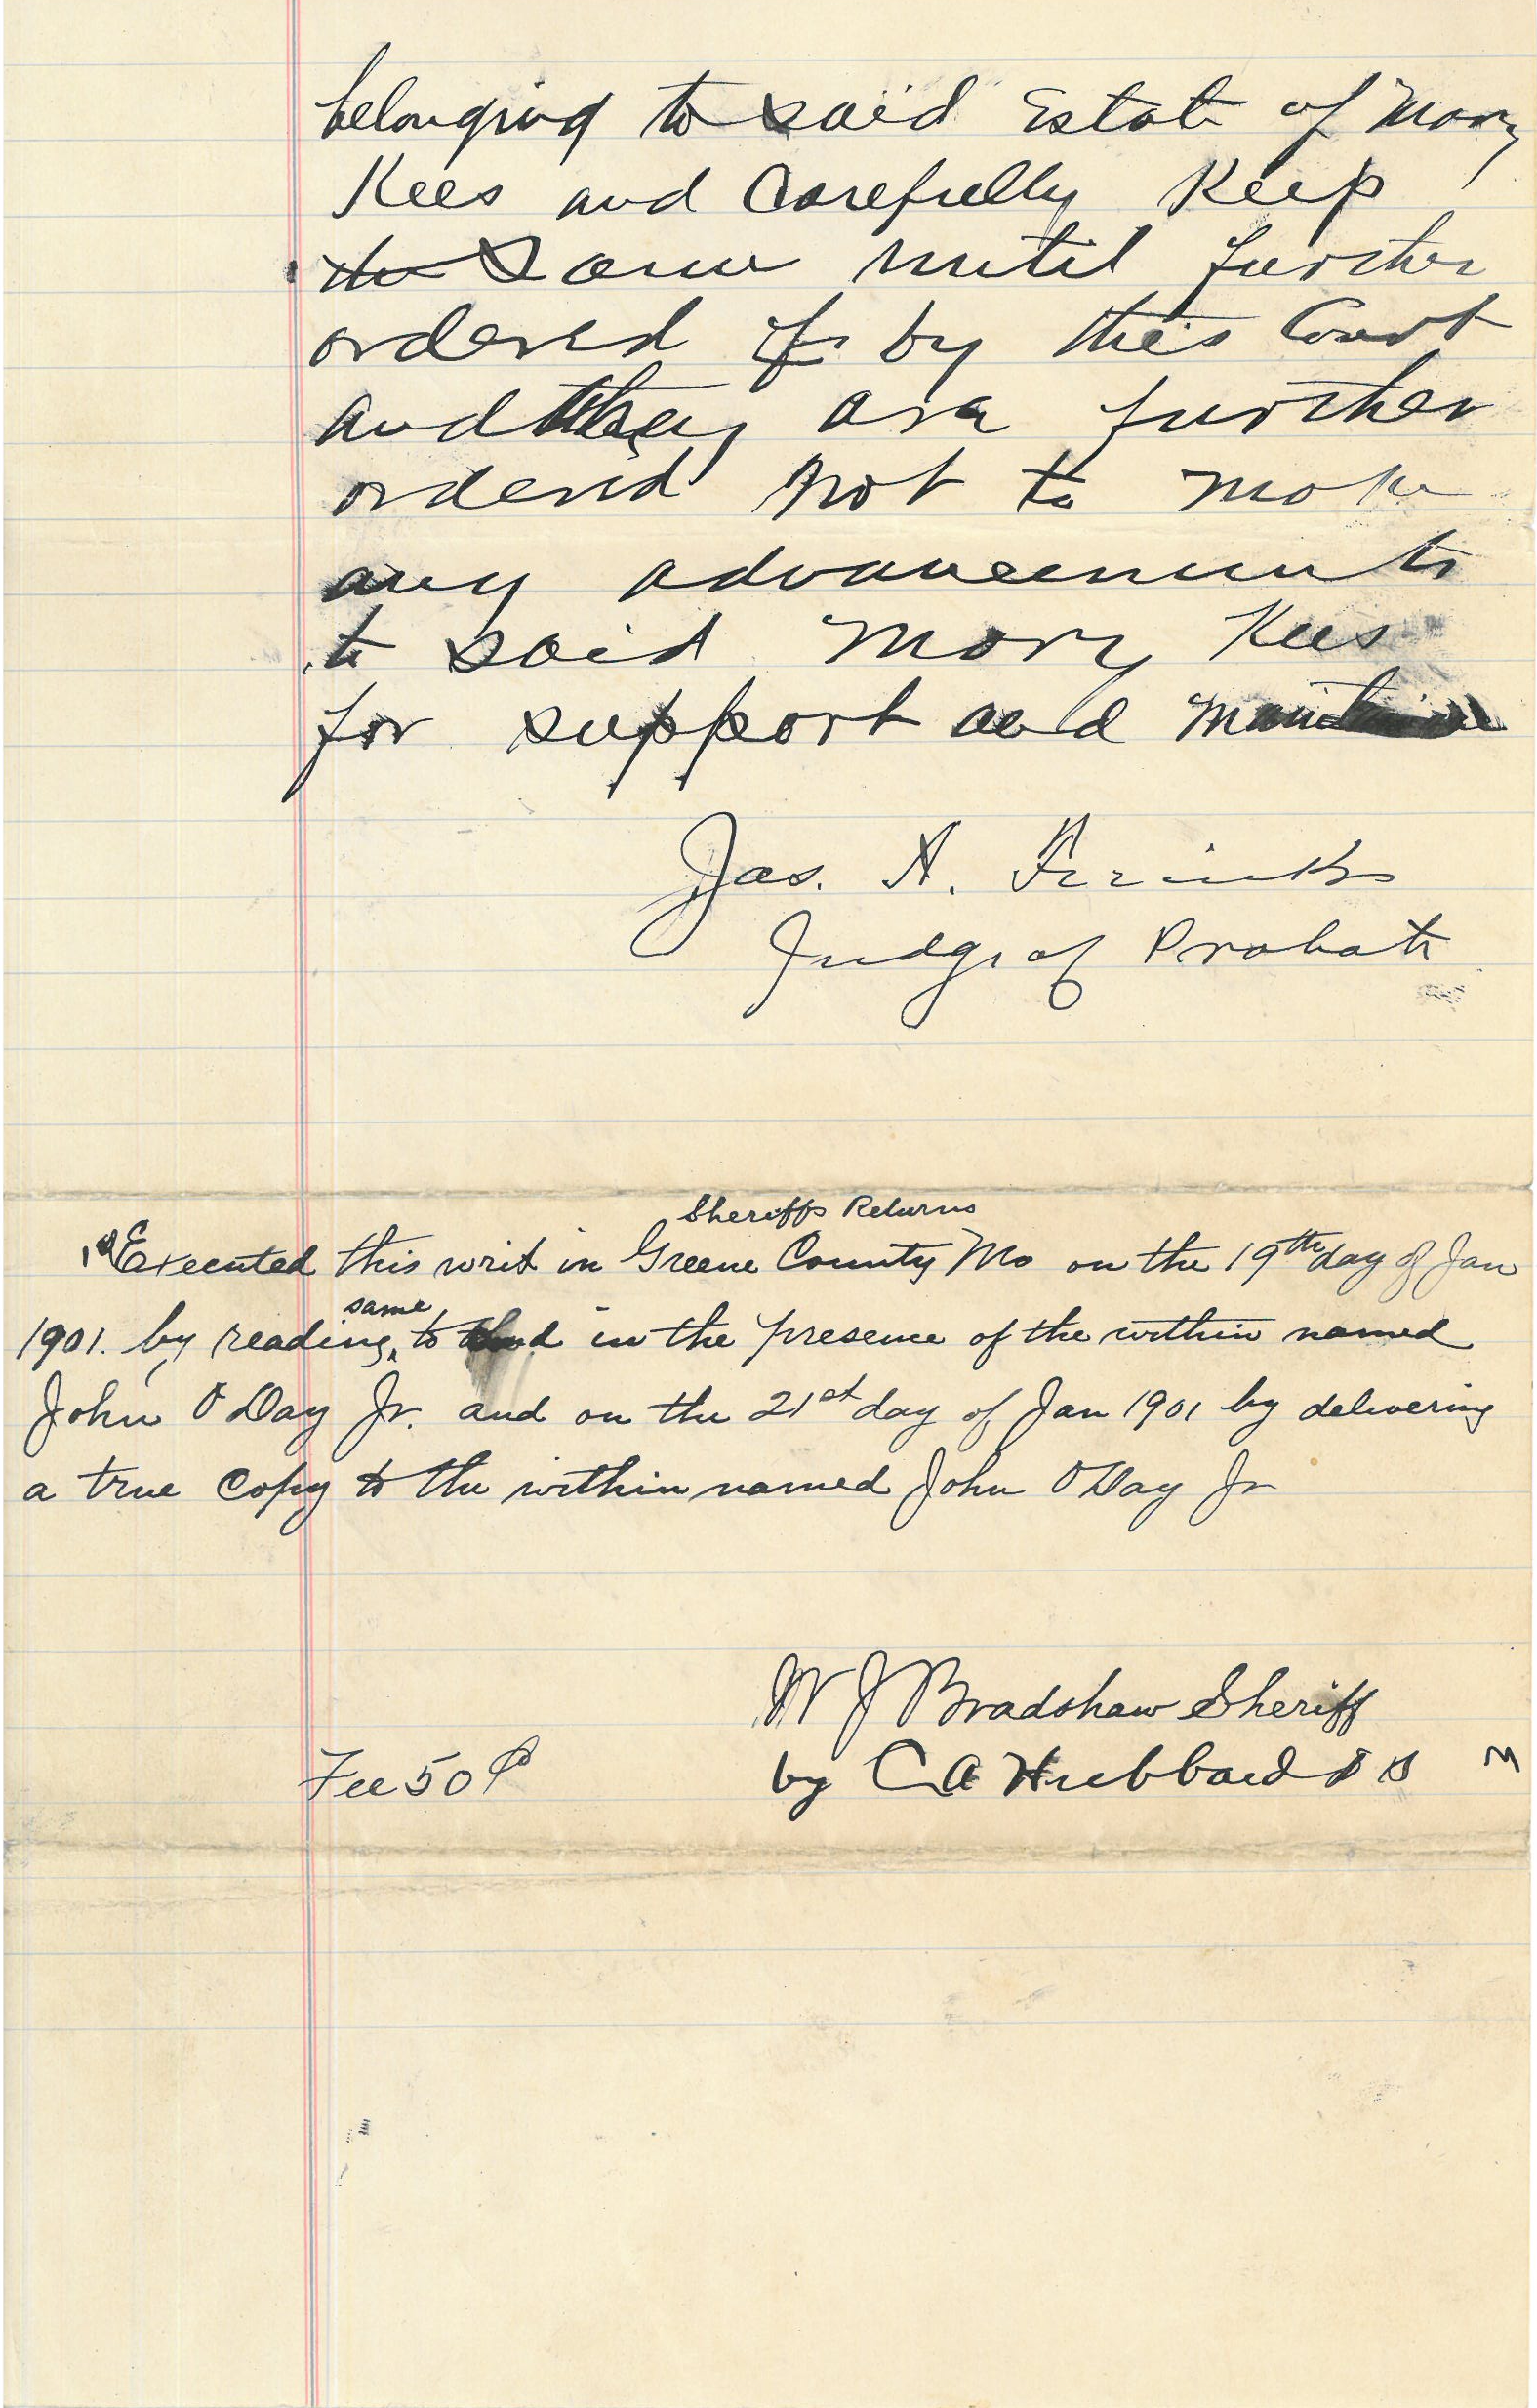 belonging to said Estate of Mary
Kees and Carefully Keep
the Same until further
ordered by this Court
and they are further
ordered Not to make
any advancements
to said Mary Kees
for support and
Jas. A.
Judge of Probate
Sheriffs Returns
Executed this writ in Greene County Mo on the 19th day of Jan
1901. by reading same to in the presence of the within named
John O Day Jr. and on the 21st day of Jan 1901 by delivering
a true Copy to the within named John O Day Jr
W J Bradshaw Sheriff
Fee 50¢ by C A Hubbard D S